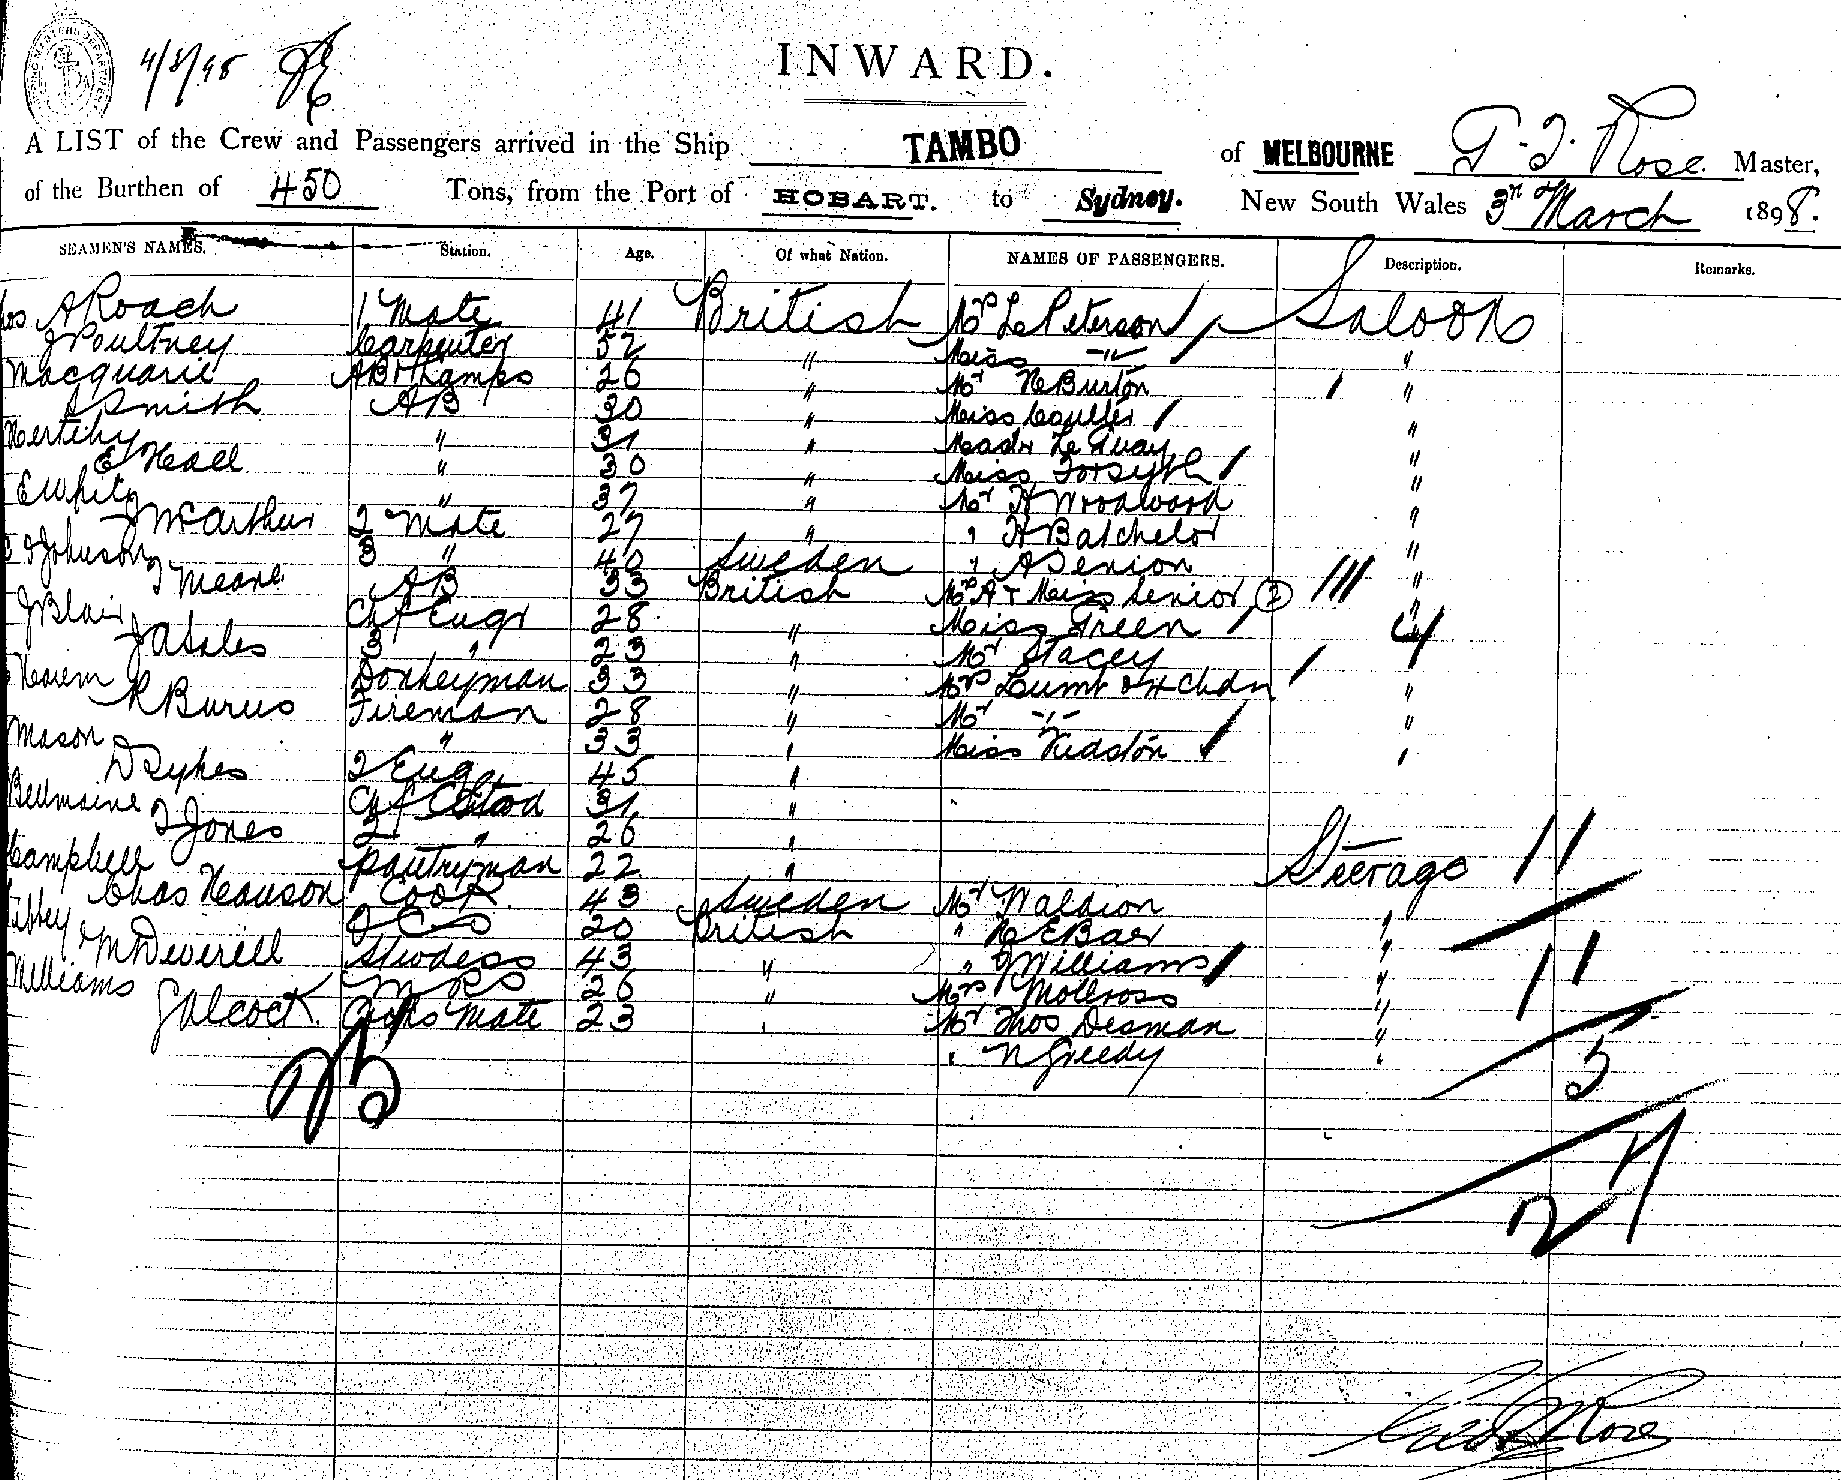 4/3/98
INWARD.
A LIST of the Crew and Passengers arrived in the Ship TAMBO of MELBOURNE Rose. Master,
of the Burthen of 450 Tons, from the Port of HOBART. to Sydney. New South Wales 3rd March 1898.
SEAMEN'S NAMES. Station. Age. Of what Nation. NAMES OF PASSENGERS. Description. Remarks.
A Roach 1 Mate 41 British Mrs Peterson Saloon
J Poultney Carpenter 52 " Miss -"- "
Macquarie AB & Lamps 26 " Mr H Burton "
Smith AB 30 " Miss Coulter "
" 31 " Le Quay "
E Hall " 30 " Miss Forsyth "
E White " 37 " Mr H Woodward "
J McArthur 2 Mate 27 " " H Batchelor "
J Johnson 3 " 40 Sweden " A Senior "
AB 33 British Mrs A & Miss Senior 2 "
J Blair Chf Engr 28 " Miss Green "
J A Sales 3 " 23 " Mr Stacey 4
Donkeyman 33 " Mrs & Chdn "
R Burns Fireman 28 " Mr -"- "
Mason " 33 " Miss Kidston "
D Sykes 2 Eng 45 "
Bellmaine Chf Stwd 31 "
J Jones 2 " 26 "
Campbell Pantryman 22 " Steerage 11
Chas Hanson Cook 43 Sweden Mr Waldron "
20 British " H E Baer "
M Deverell Stwdess 43 " " Williams " 11
Williams M R S 26 " Mrs Mollross "
G Alcock. Cooks Mate 23 " Mr Thos Desman "
" N Greedy " 5
25
27
Rose